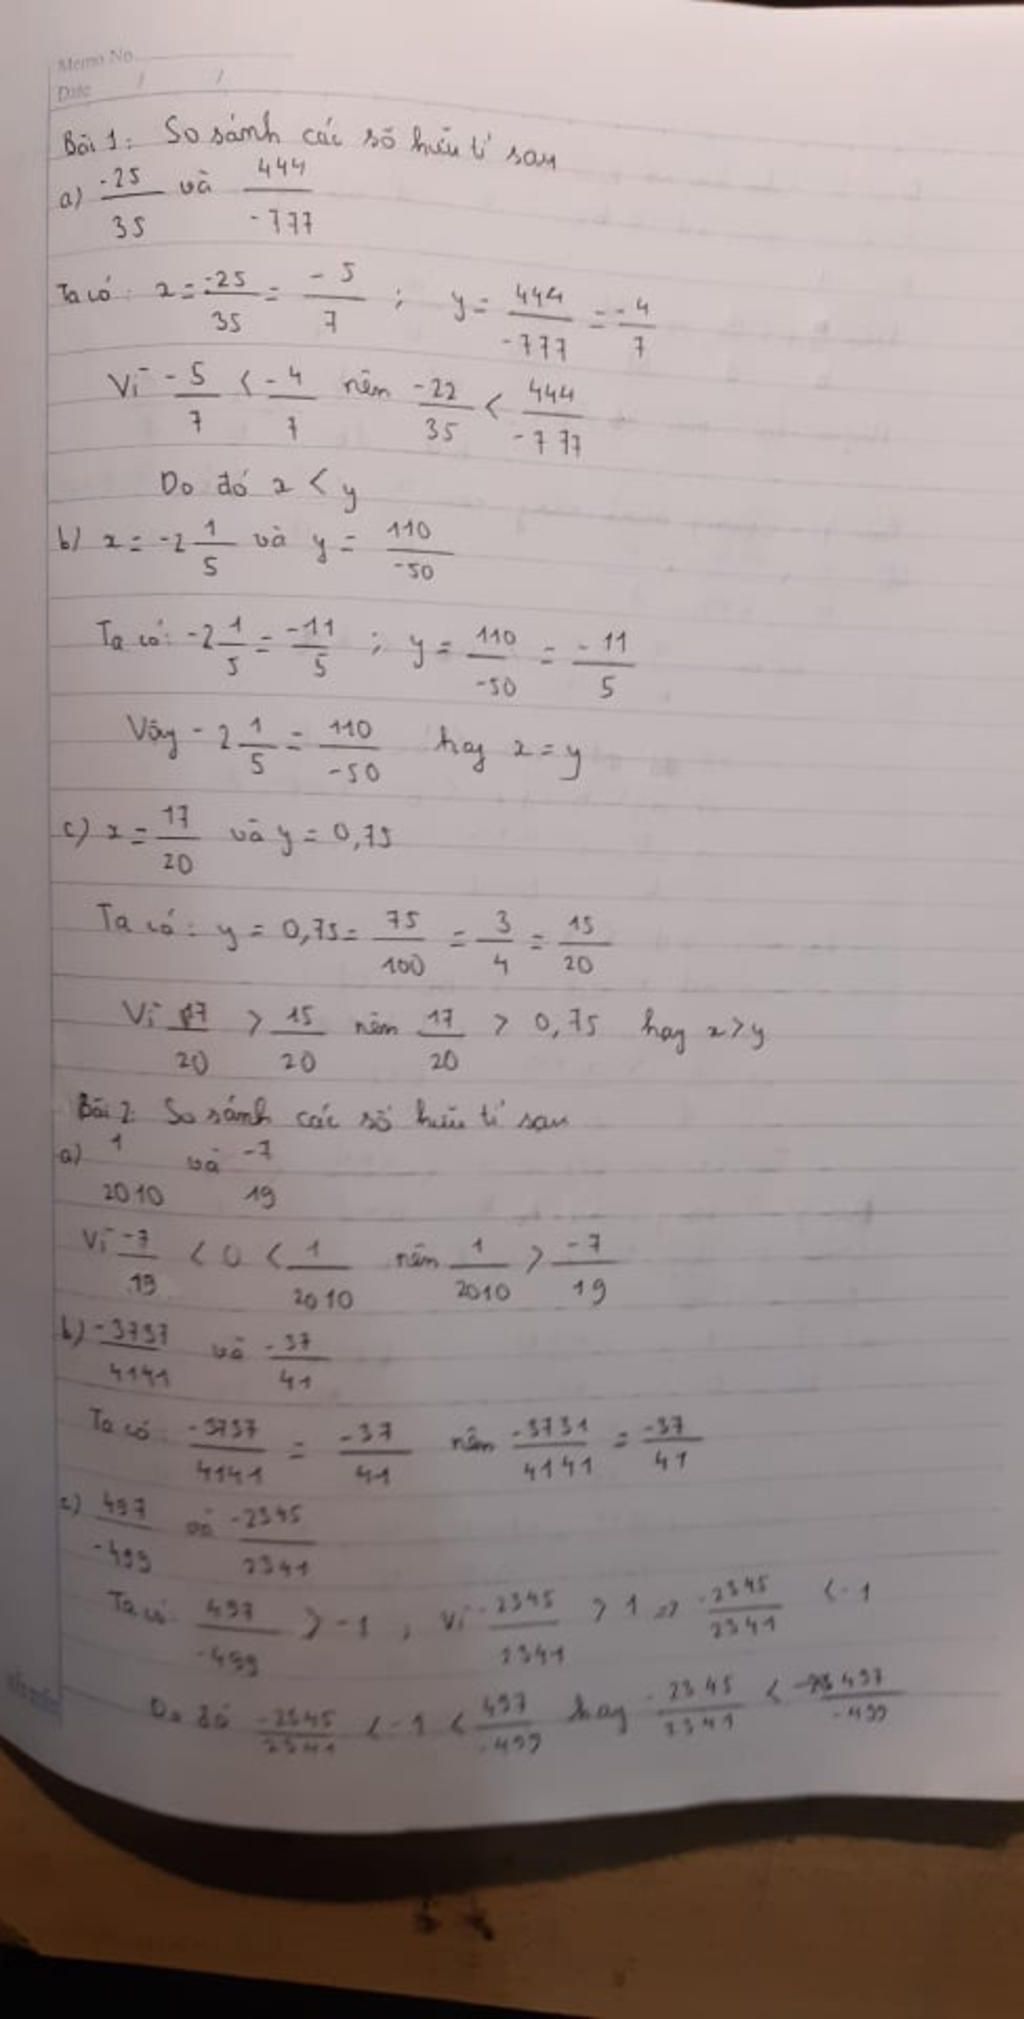 Memo No.
Date / /
Bài 1: So sánh các số hữu tỉ sau
a) -25/35 và 444/-777
Ta có: x = -25/35 = -5/7 ; y = 444/-777 = -4/7
Vì -5/7 < -4/7 nên -22/35 < 444/-777
Do đó x < y
b) x = -2 1/5 và y = 110/-50
Ta có: -2 1/5 = -11/5 ; y = 110/-50 = -11/5
Vây -2 1/5 = 110/-50 hay x = y
c) x = 17/20 và y = 0,75
Ta có: y = 0,75 = 75/100 = 3/4 = 15/20
Vì 17/20 > 15/20 nên 17/20 > 0,75 hay x > y
Bài 2: So sánh các số hữu tỉ sau
a) 1/2010 và -7/19
Vì -7/19 < 0 < 1/2010 nên 1/2010 > -7/19
b) -3737/4141 và -37/41
Ta có -3737/4141 = -37/41 nên -3731/4141 = -37/41
c) 497/-499 và -2345/2341
Ta có 497/-499 > -1 , Vì -2345/2341 > 1 => -2345/2341 < -1
Do đó -2345/2341 < -1 < 497/-499 hay -2345/2341 < 497/-499